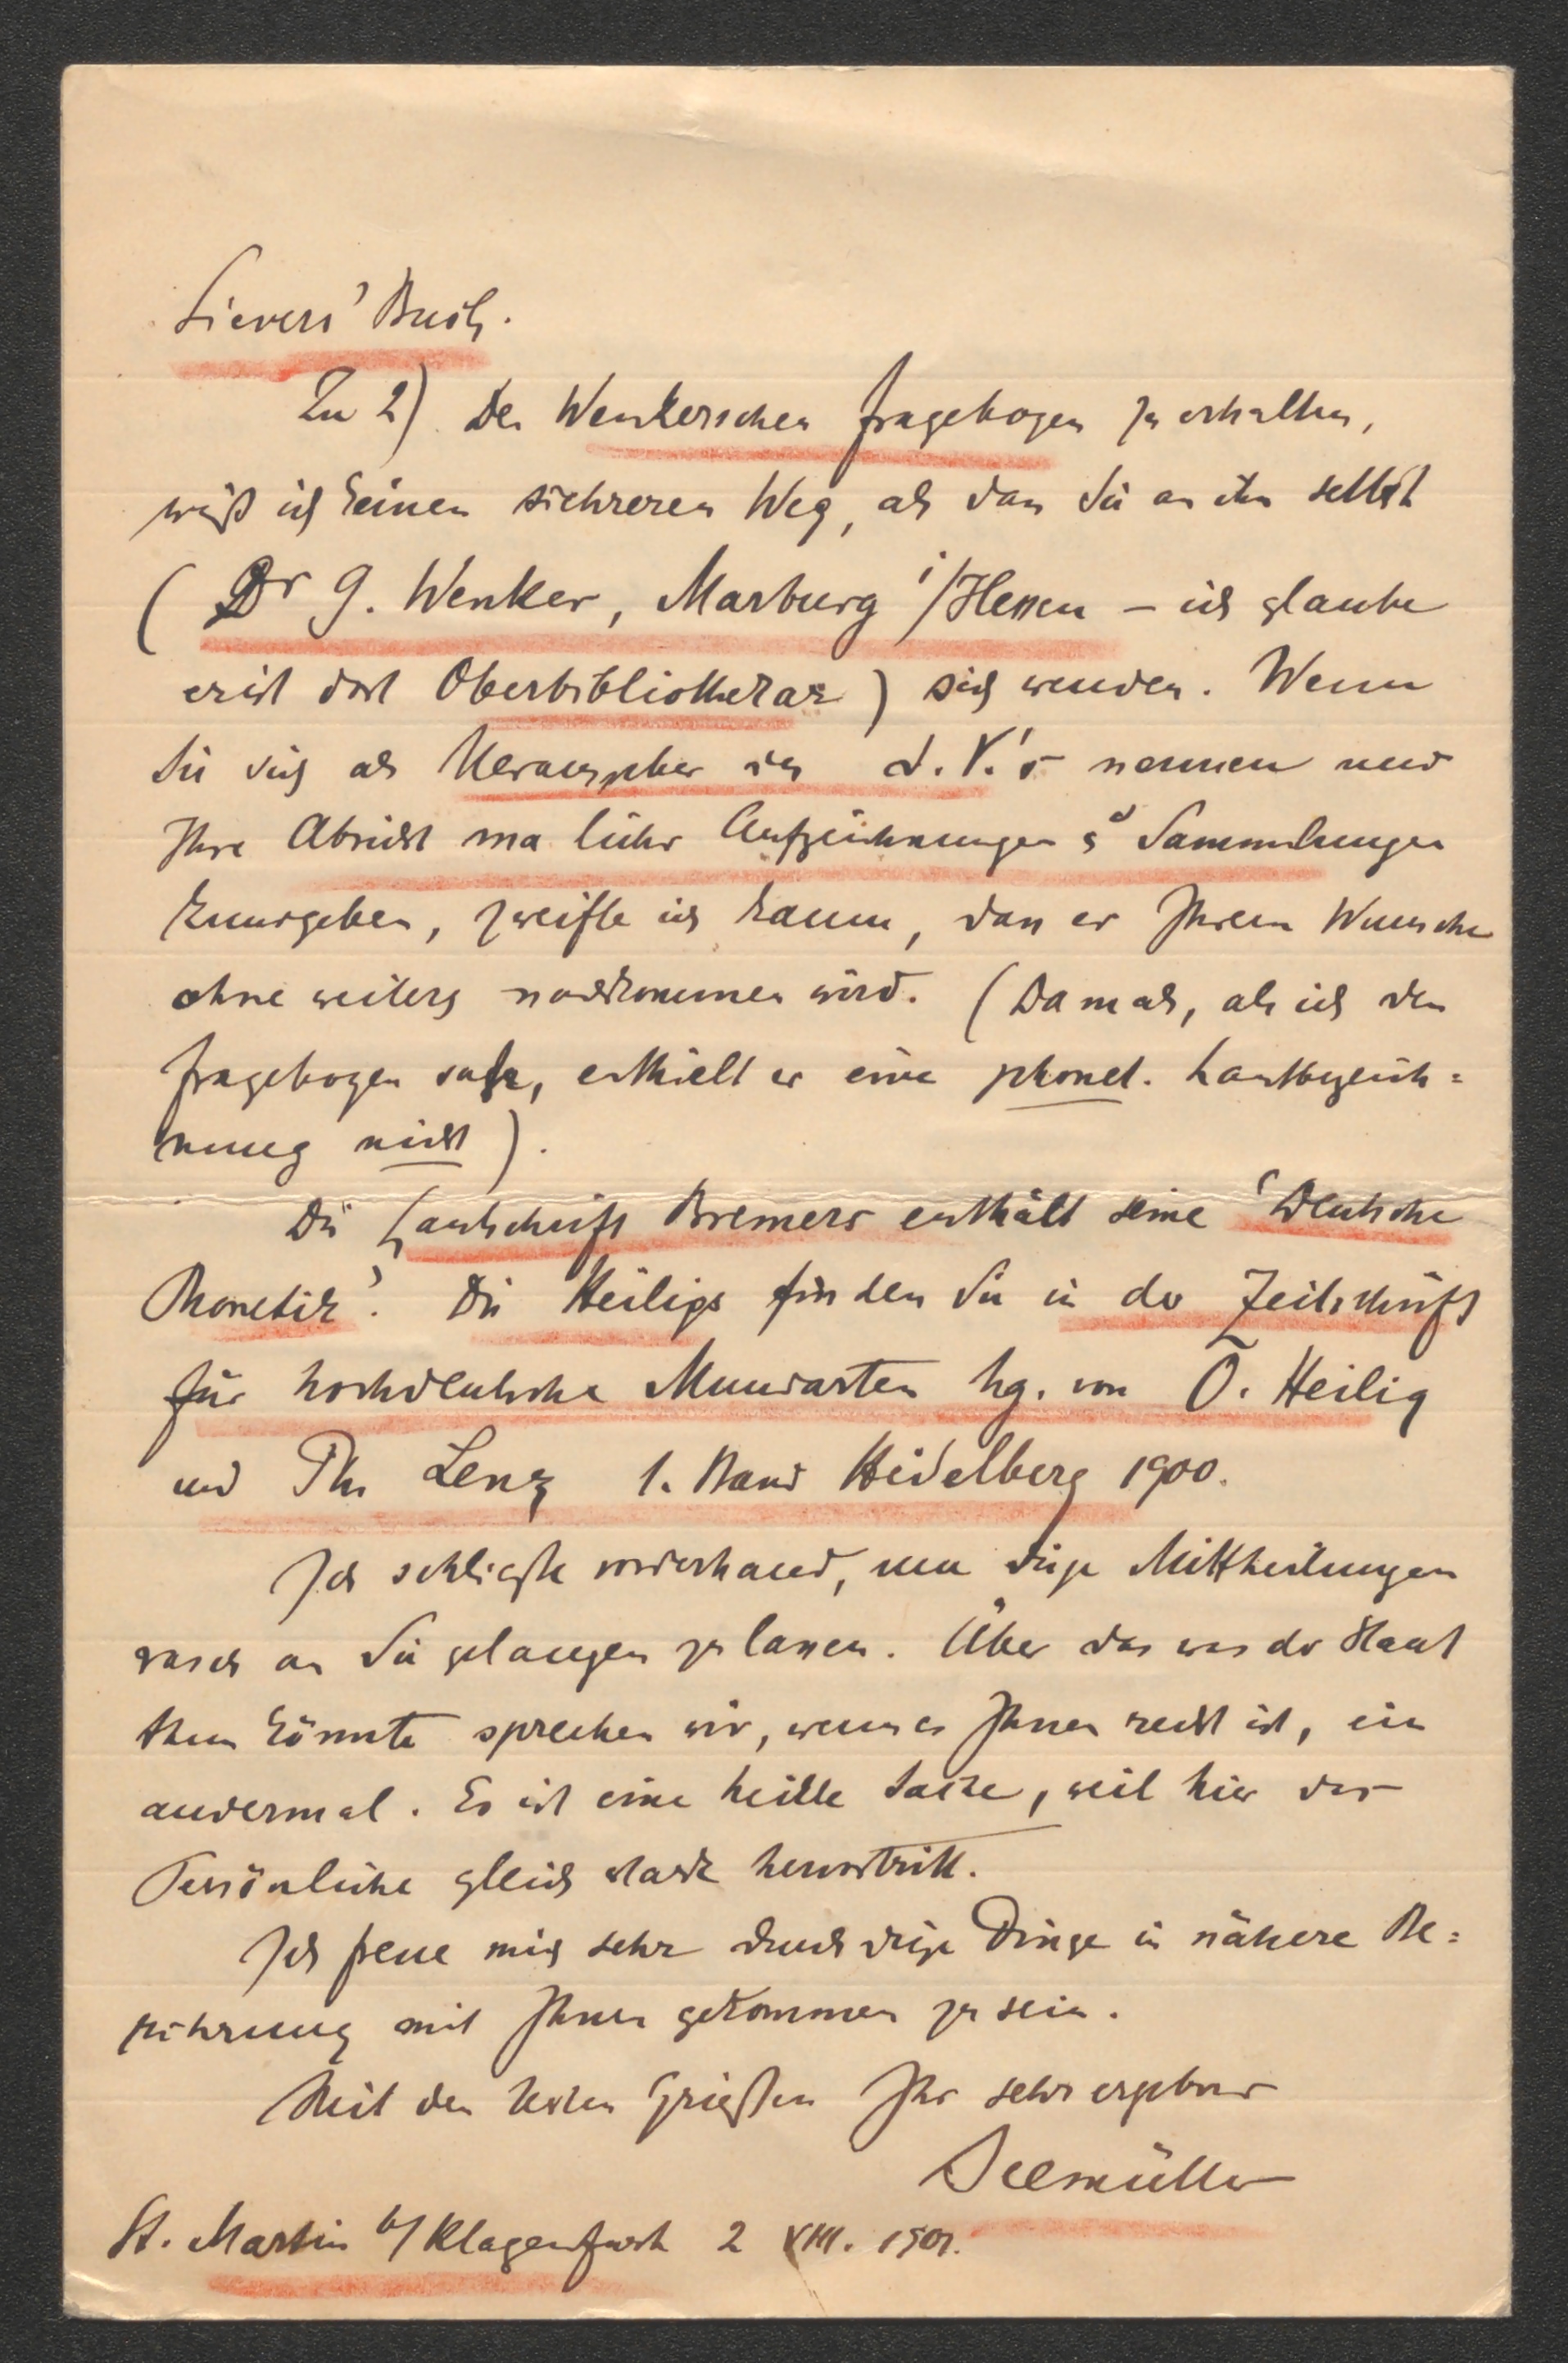 Sievers' Buch.
Zu 2) Den Wenkerschen Fragebogen zu erhalten,
weiß ich keinen sichreren Weg, als dass Sie an ihn selbst
(Dr G. Wenker, Marburg i/Hessen – ich glaube
er ist dort Oberbibliothekar) sich wenden. Wenn
Sie sich als Herausgeber des d. V.'s nennen und
Ihre Absicht mundartlicher Aufzeichnungen u Sammlungen
kundgeben, zweifle ich kaum, dass er Ihrem Wunsche
ohne weiters nachkommen wird. (Damals, als ich den
Fragebogen sah, enthielt er eine phonet. Lautbezeich=
nung nicht).
Die Lautschrift Bremers enthält seine 'Deutsche
Phonetik'. Die Heiligs finden Sie in der Zeitschrift
für hochdeutsche Mundarten hg. von O. Heilig
und Ph. Lenz 1. Band Heidelberg 1900.
Ich schließe vorderhand, um diese Mittheilungen
rasch an Sie gelangen zu lassen. Über das was der Staat
thun könnte sprechen wir, wenn es Ihnen recht ist, ein
andermal. Es ist eine heikle Sache, weil hier das
Persönliche gleich stark hervortritt.
Ich freue mich sehr durch diese Dinge in nähere Be=
rührung mit Ihnen gekommen zu sein.
Mit den besten Grüßen Ihr sehr ergebener
Seemüller
St. Martin b/ Klagenfurt 2 VIII. 1901.